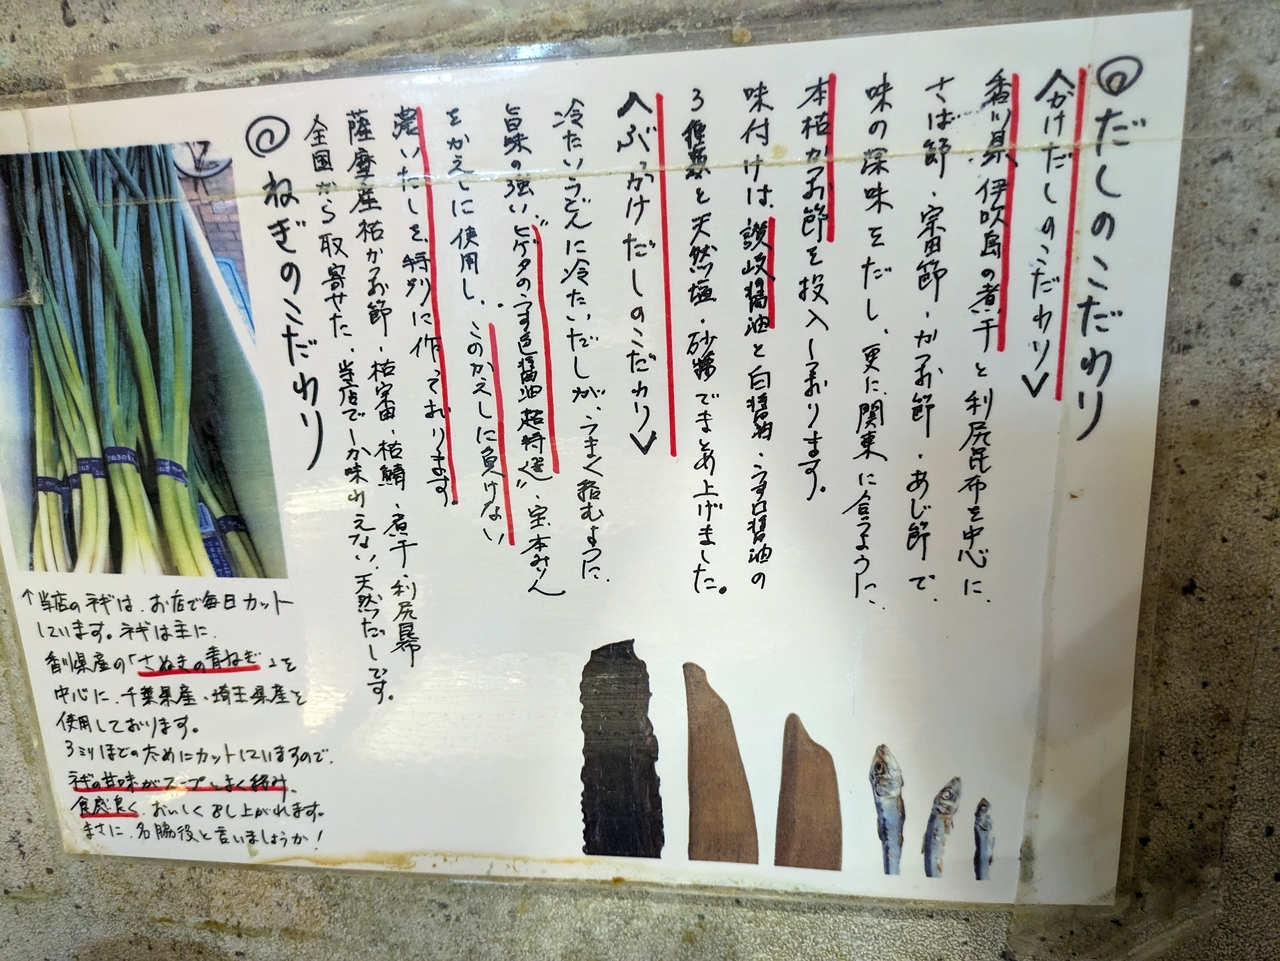 ◎だしのこだわり
〈かけだしのこだわり〉
香川県伊吹島の煮干と利尻昆布を中心に、
さば節・宗田節・かつお節・あじ節で、
味の深味をだし、更に関東に合うように、
本枯かつお節を投入しております。
味付けは、讃岐醤油と白醤油・うす口醤油の
3種類と天然塩・砂糖でまとめ上げました。
〈ぶっかけだしのこだわり〉
冷たいうどんに冷たいだしが、うまく絡むように、
旨味の強い"ヒゲタのうす色醤油 超特選"、宝本みりん
をかえしに使用し、このかえしに負けない
濃いだしを、特別に作っております。
薩摩産枯かつお節・枯宗田・枯鯖・煮干・利尻昆布
全国から取寄せた、当店でしか味わえない、天然だしです。
◎ねぎのこだわり
↑当店のネギは、お店で毎日カット
しています。ネギは主に、
香川県産の「さぬきの青ねぎ」を
中心に、千葉県産・埼玉県産を
使用しております。
3ミリほどのためにカットしていますので、
ネギの甘味がスープとよく絡み、
食感良く、おいしく召し上がれます。
まさに、名脇役と言いましょうか!